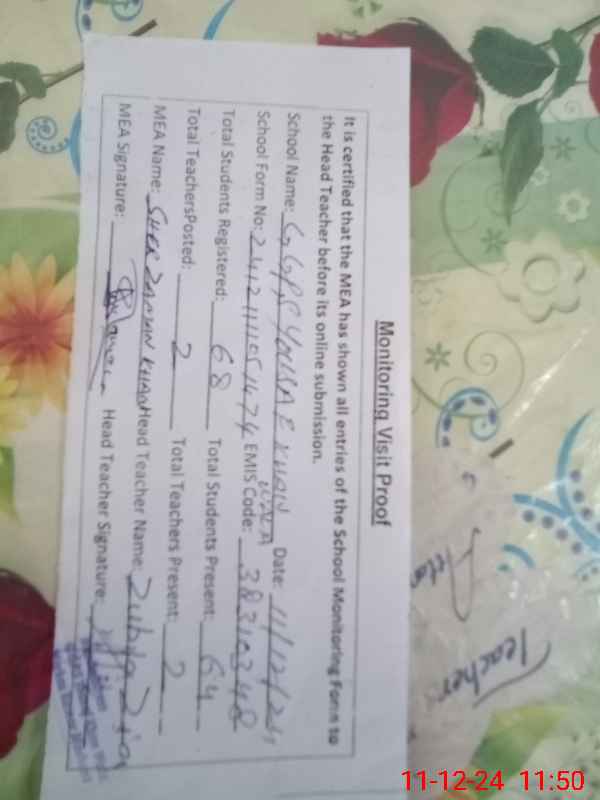 Monitoring Visit Proof
It is certified that the MEA has shown all entries of the School Monitoring Form to
the Head Teacher before its online submission.
School Name: GGPS YOUSAF KHAN Date: 11/12/24
School Form No: EMIS Code: 38310348
Total Students Registered: 68 Total Students Present: 64
Total TeachersPosted: 2 Total Teachers Present: 2
MEA Name: SHER ZAMAN KHAN Head Teacher Name: Zubia Zia
MEA Signature: Head Teacher Signature:
Teacher
11-12-24 11:50